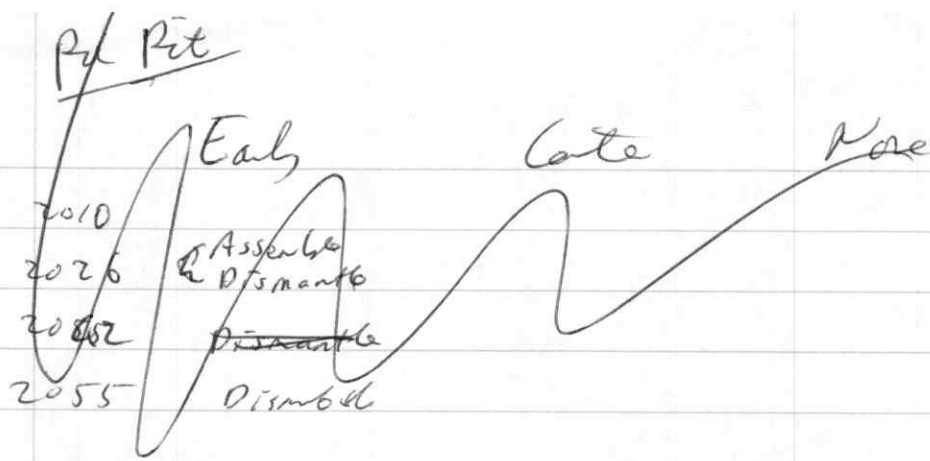 Pit
Early Late None
2010
2026 & Assemble
Dismantle
2052 Dismantle
2055